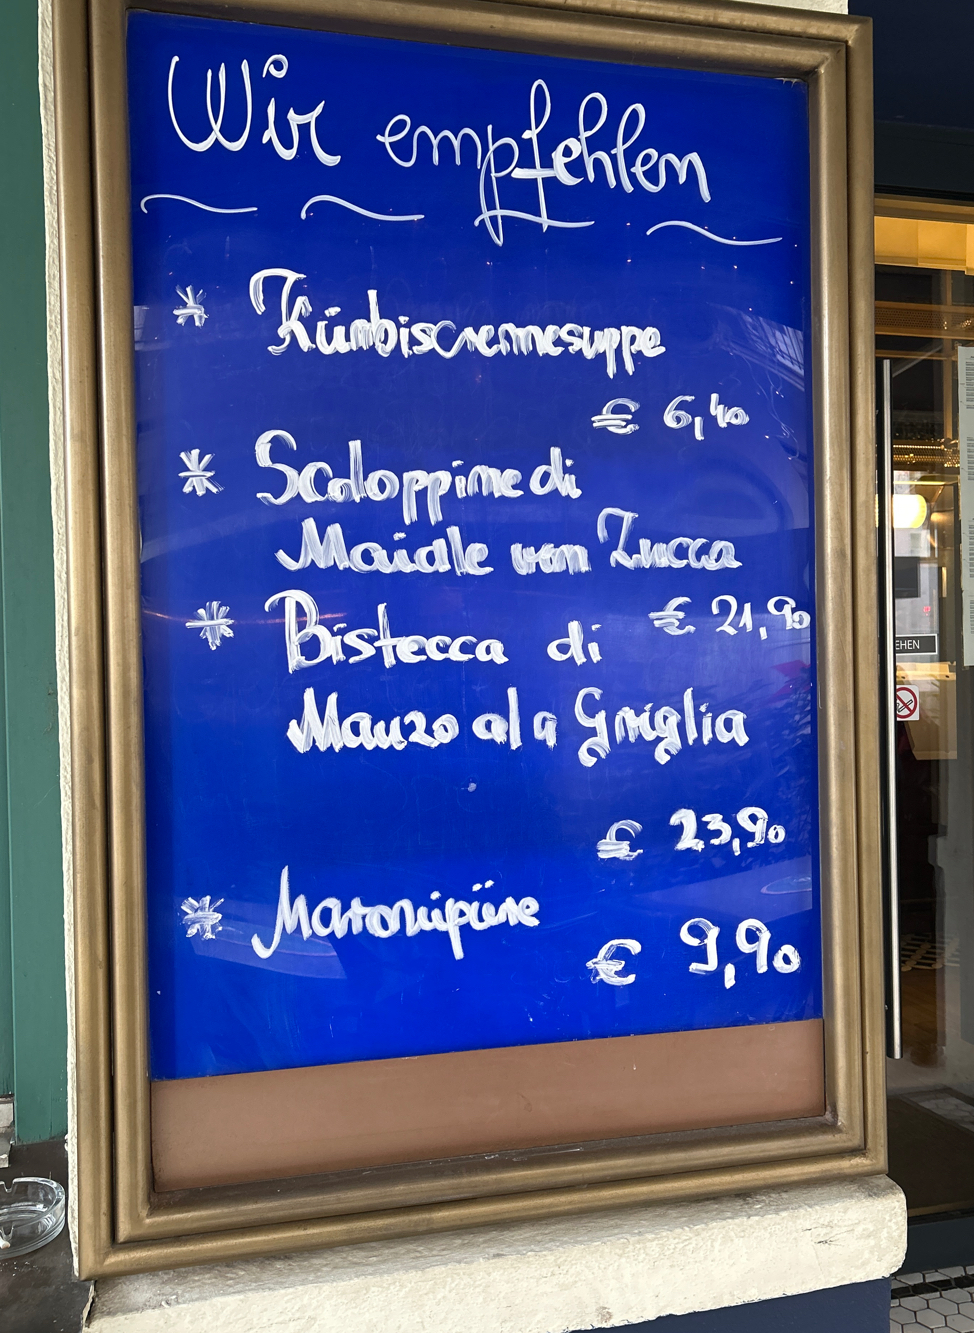 Wir empfehlen
* Kürbiscremesuppe
€ 6,40
* Scaloppine di
Maiale von Zucca
€ 21,90
* Bistecca di
Manzo al a Griglia
€ 23,90
* Maronipüre
€ 9,90
EHEN